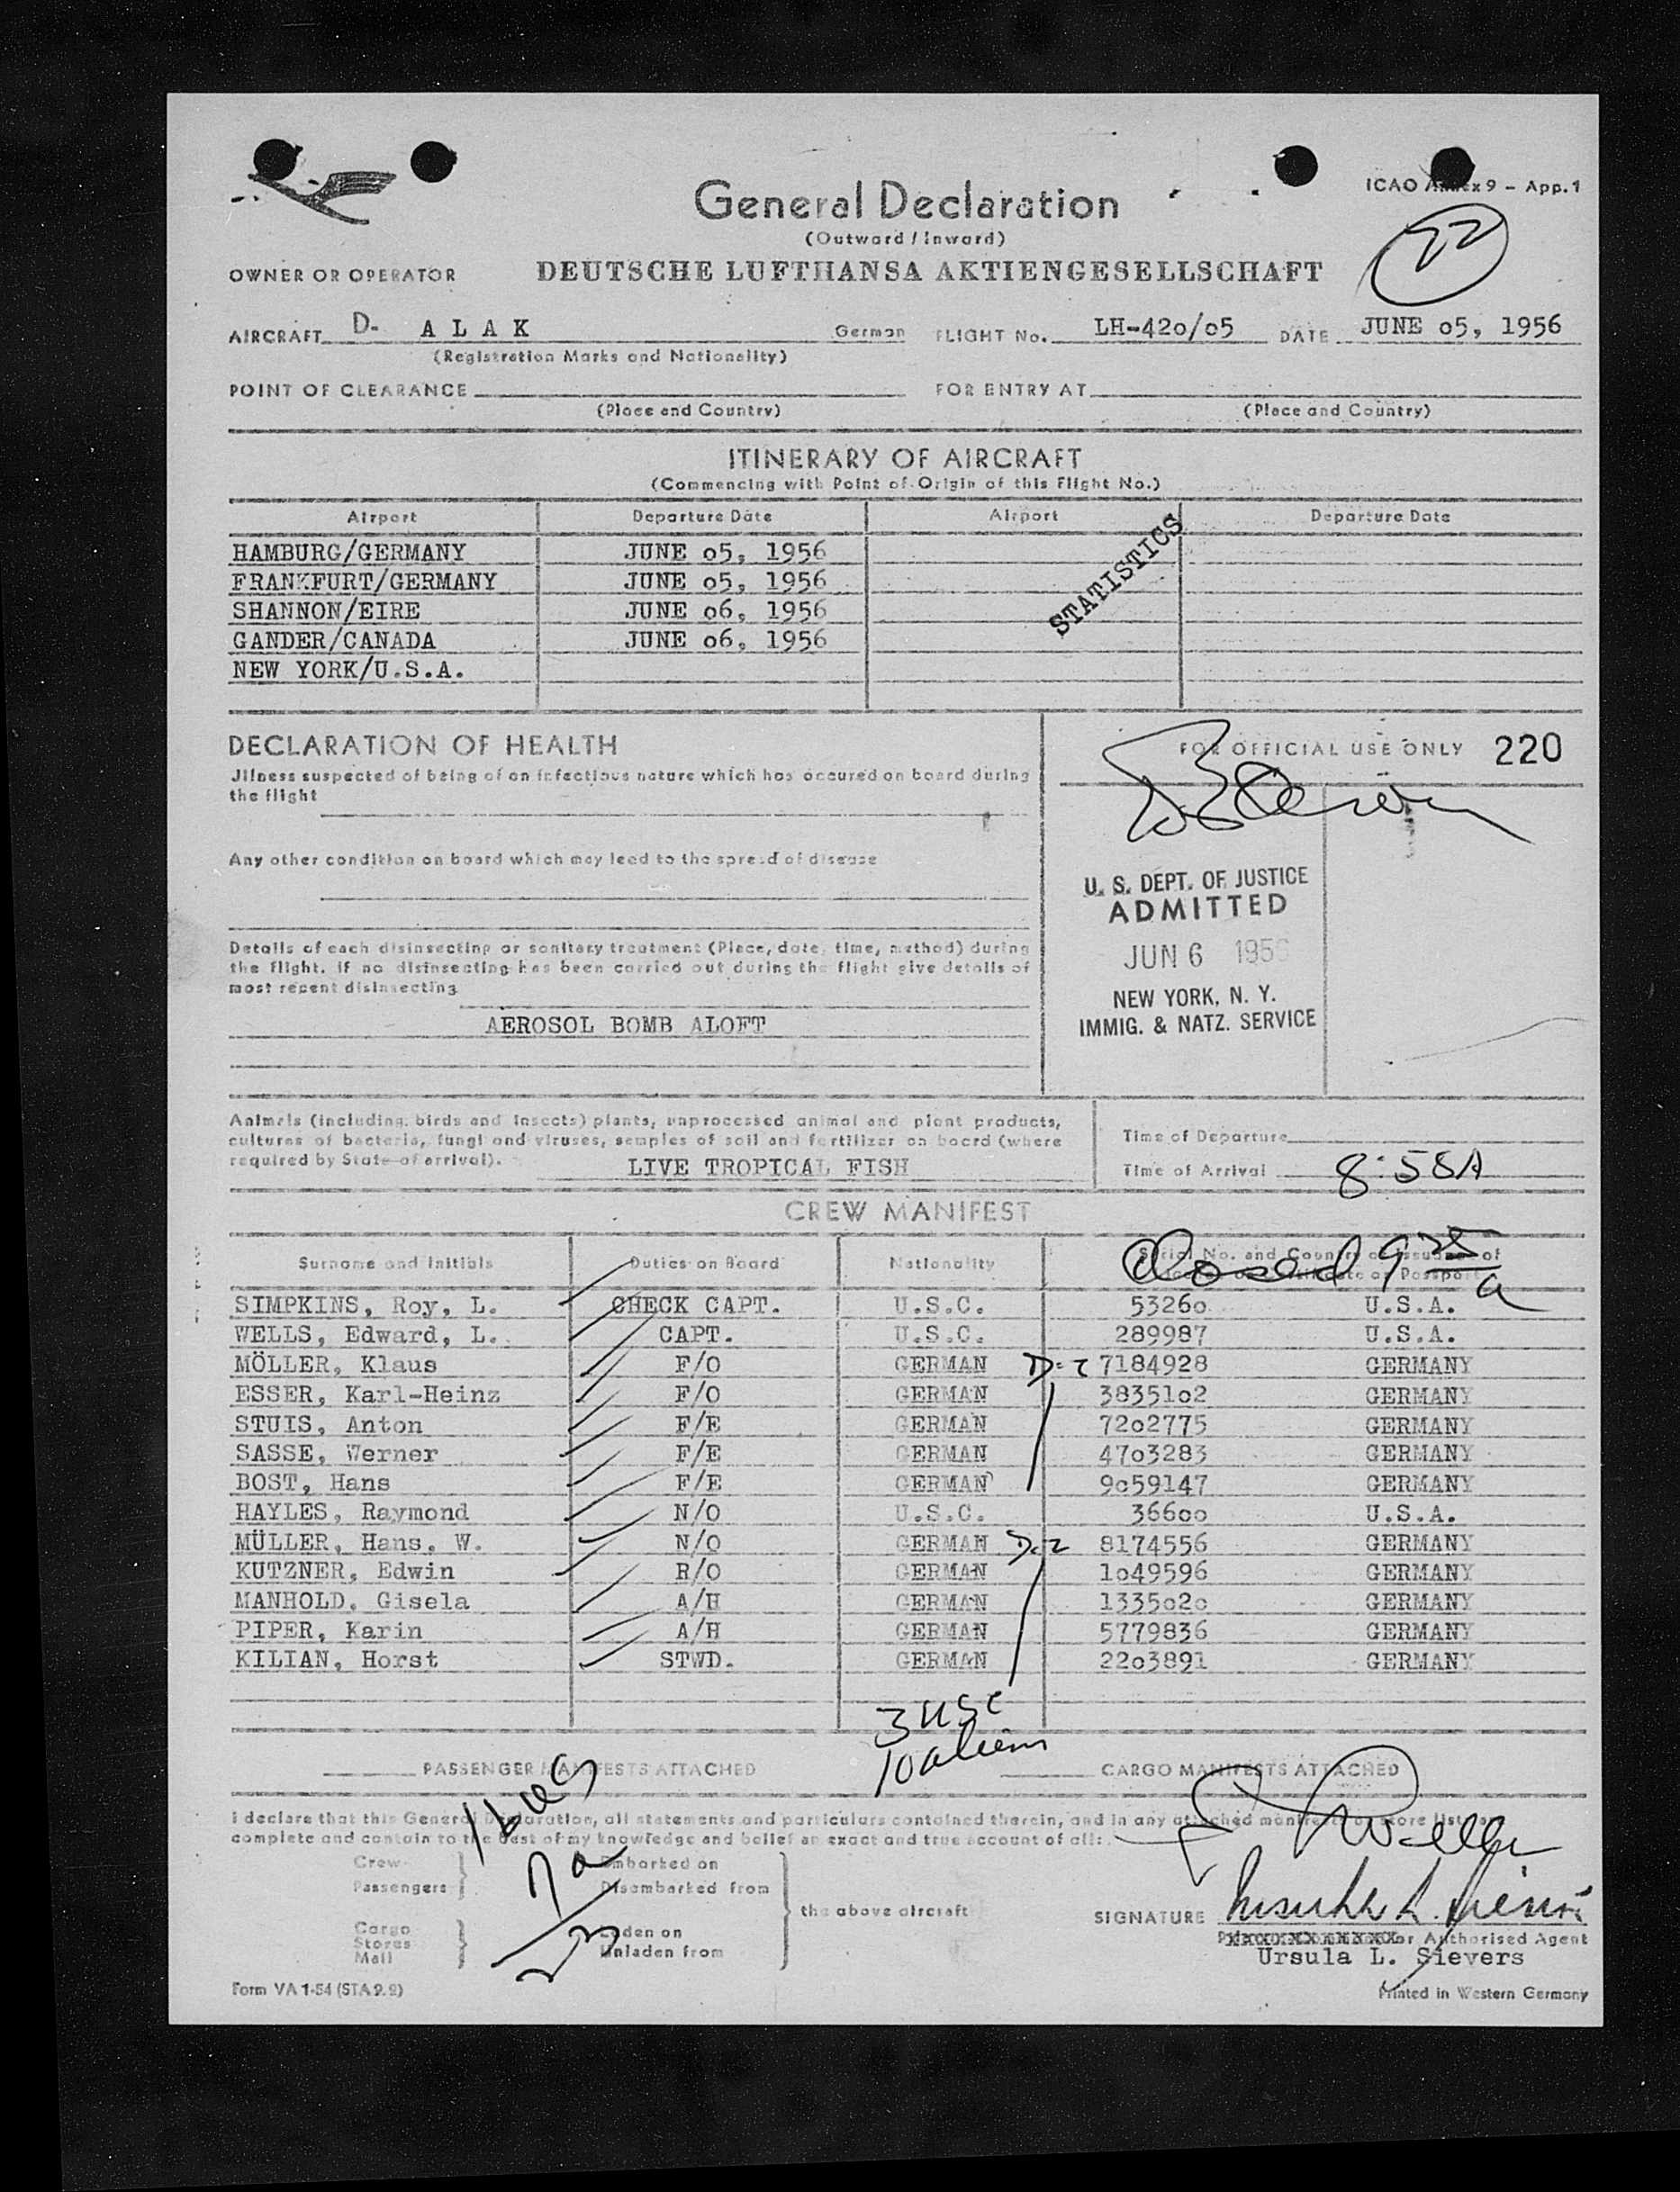 General Declaration
ICAO Annex 9 – App. 1
(Outward / Inward)
22
OWNER OR OPERATOR DEUTSCHE LUFTHANSA AKTIENGESELLSCHAFT
AIRCRAFT D- A L A K German FLIGHT No. LH-42o/o5 DATE JUNE o5, 1956
(Registration Marks and Nationality)
POINT OF CLEARANCE FOR ENTRY AT
(Place and Country) (Place and Country)
ITINERARY OF AIRCRAFT
(Commencing with Point of Origin of this Flight No.)
Airport Departure Date Airport Departure Date
HAMBURG/GERMANY JUNE o5, 1956
FRANKFURT/GERMANY JUNE o5, 1956
SHANNON/EIRE JUNE o6, 1956
GANDER/CANADA JUNE o6, 1956
NEW YORK/U.S.A.
STATISTICS
DECLARATION OF HEALTH
Jilness suspected of being of an infectious nature which has occured on board during
the flight
Any other condition on board which may lead to the spread of disease
Details of each disinsecting or sanitary treatment (Place, date, time, method) during
the flight. If no disinsecting has been carried out during the flight give details of
most recent disinsecting
AEROSOL BOMB ALOFT
FOR OFFICIAL USE ONLY 220
U. S. DEPT. OF JUSTICE
ADMITTED
JUN 6 1956
NEW YORK, N. Y.
IMMIG. & NATZ. SERVICE
Animals (including birds and insects) plants, unprocessed animal and plant products,
cultures of bacteria, fungi and viruses, samples of soil and fertilizer on board (where
required by State of arrival). LIVE TROPICAL FISH
Time of Departure
Time of Arrival 8:58A
CREW MANIFEST
Surname and Initials Duties on Board Nationality Serial No. and Country of Issuance of
Closed 9 25 a
SIMPKINS, Roy, L. CHECK CAPT. U.S.C. 5326o U.S.A.
WELLS, Edward, L. CAPT. U.S.C. 289987 U.S.A.
MÖLLER, Klaus F/O GERMAN D-2 7184928 GERMANY
ESSER, Karl-Heinz F/O GERMAN 38351o2 GERMANY
STUIS, Anton F/E GERMAN 72o2775 GERMANY
SASSE, Werner F/E GERMAN 47o3283 GERMANY
BOST, Hans F/E GERMAN 9o59147 GERMANY
HAYLES, Raymond N/O U.S.C. 366oo U.S.A.
MÜLLER, Hans, W. N/O GERMAN D-2 8174556 GERMANY
KUTZNER, Edwin R/O GERMAN 1o49596 GERMANY
MANHOLD, Gisela A/H GERMAN 1335o2o GERMANY
PIPER, Karin A/H GERMAN 5779836 GERMANY
KILIAN, Horst STWD. GERMAN 22o3891 GERMANY
3 USC
10 aliens
PASSENGER MANIFESTS ATTACHED CARGO MANIFESTS ATTACHED
I declare that this General Declaration, all statements and particulars contained therein, and in any attached manifests or store lists are
complete and contain to the best of my knowledge and belief an exact and true account of all:
Crew
Passengers
Embarked on
Disembarked from
the above aircraft
Cargo
Stores
Mail
Laden on
Unladen from
SIGNATURE
or Authorised Agent
Ursula L. Sievers
Form VA 1-54 (STA 9.9)
Printed in Western Germany